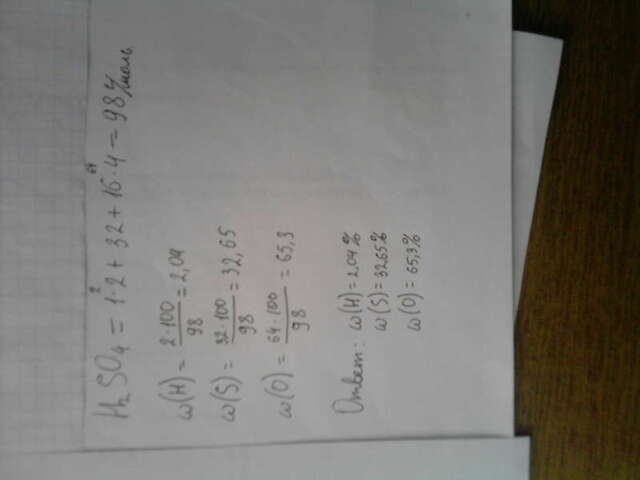 H₂SO₄ = 1·2 + 32 + 16·4 = 98 г/моль
ω(H) = 2·100/98 = 2,04
ω(S) = 32·100/98 = 32,65
ω(O) = 64·100/98 = 65,3
Ответ: ω(H) = 2,04%
ω(S) = 32,65%
ω(O) = 65,3%